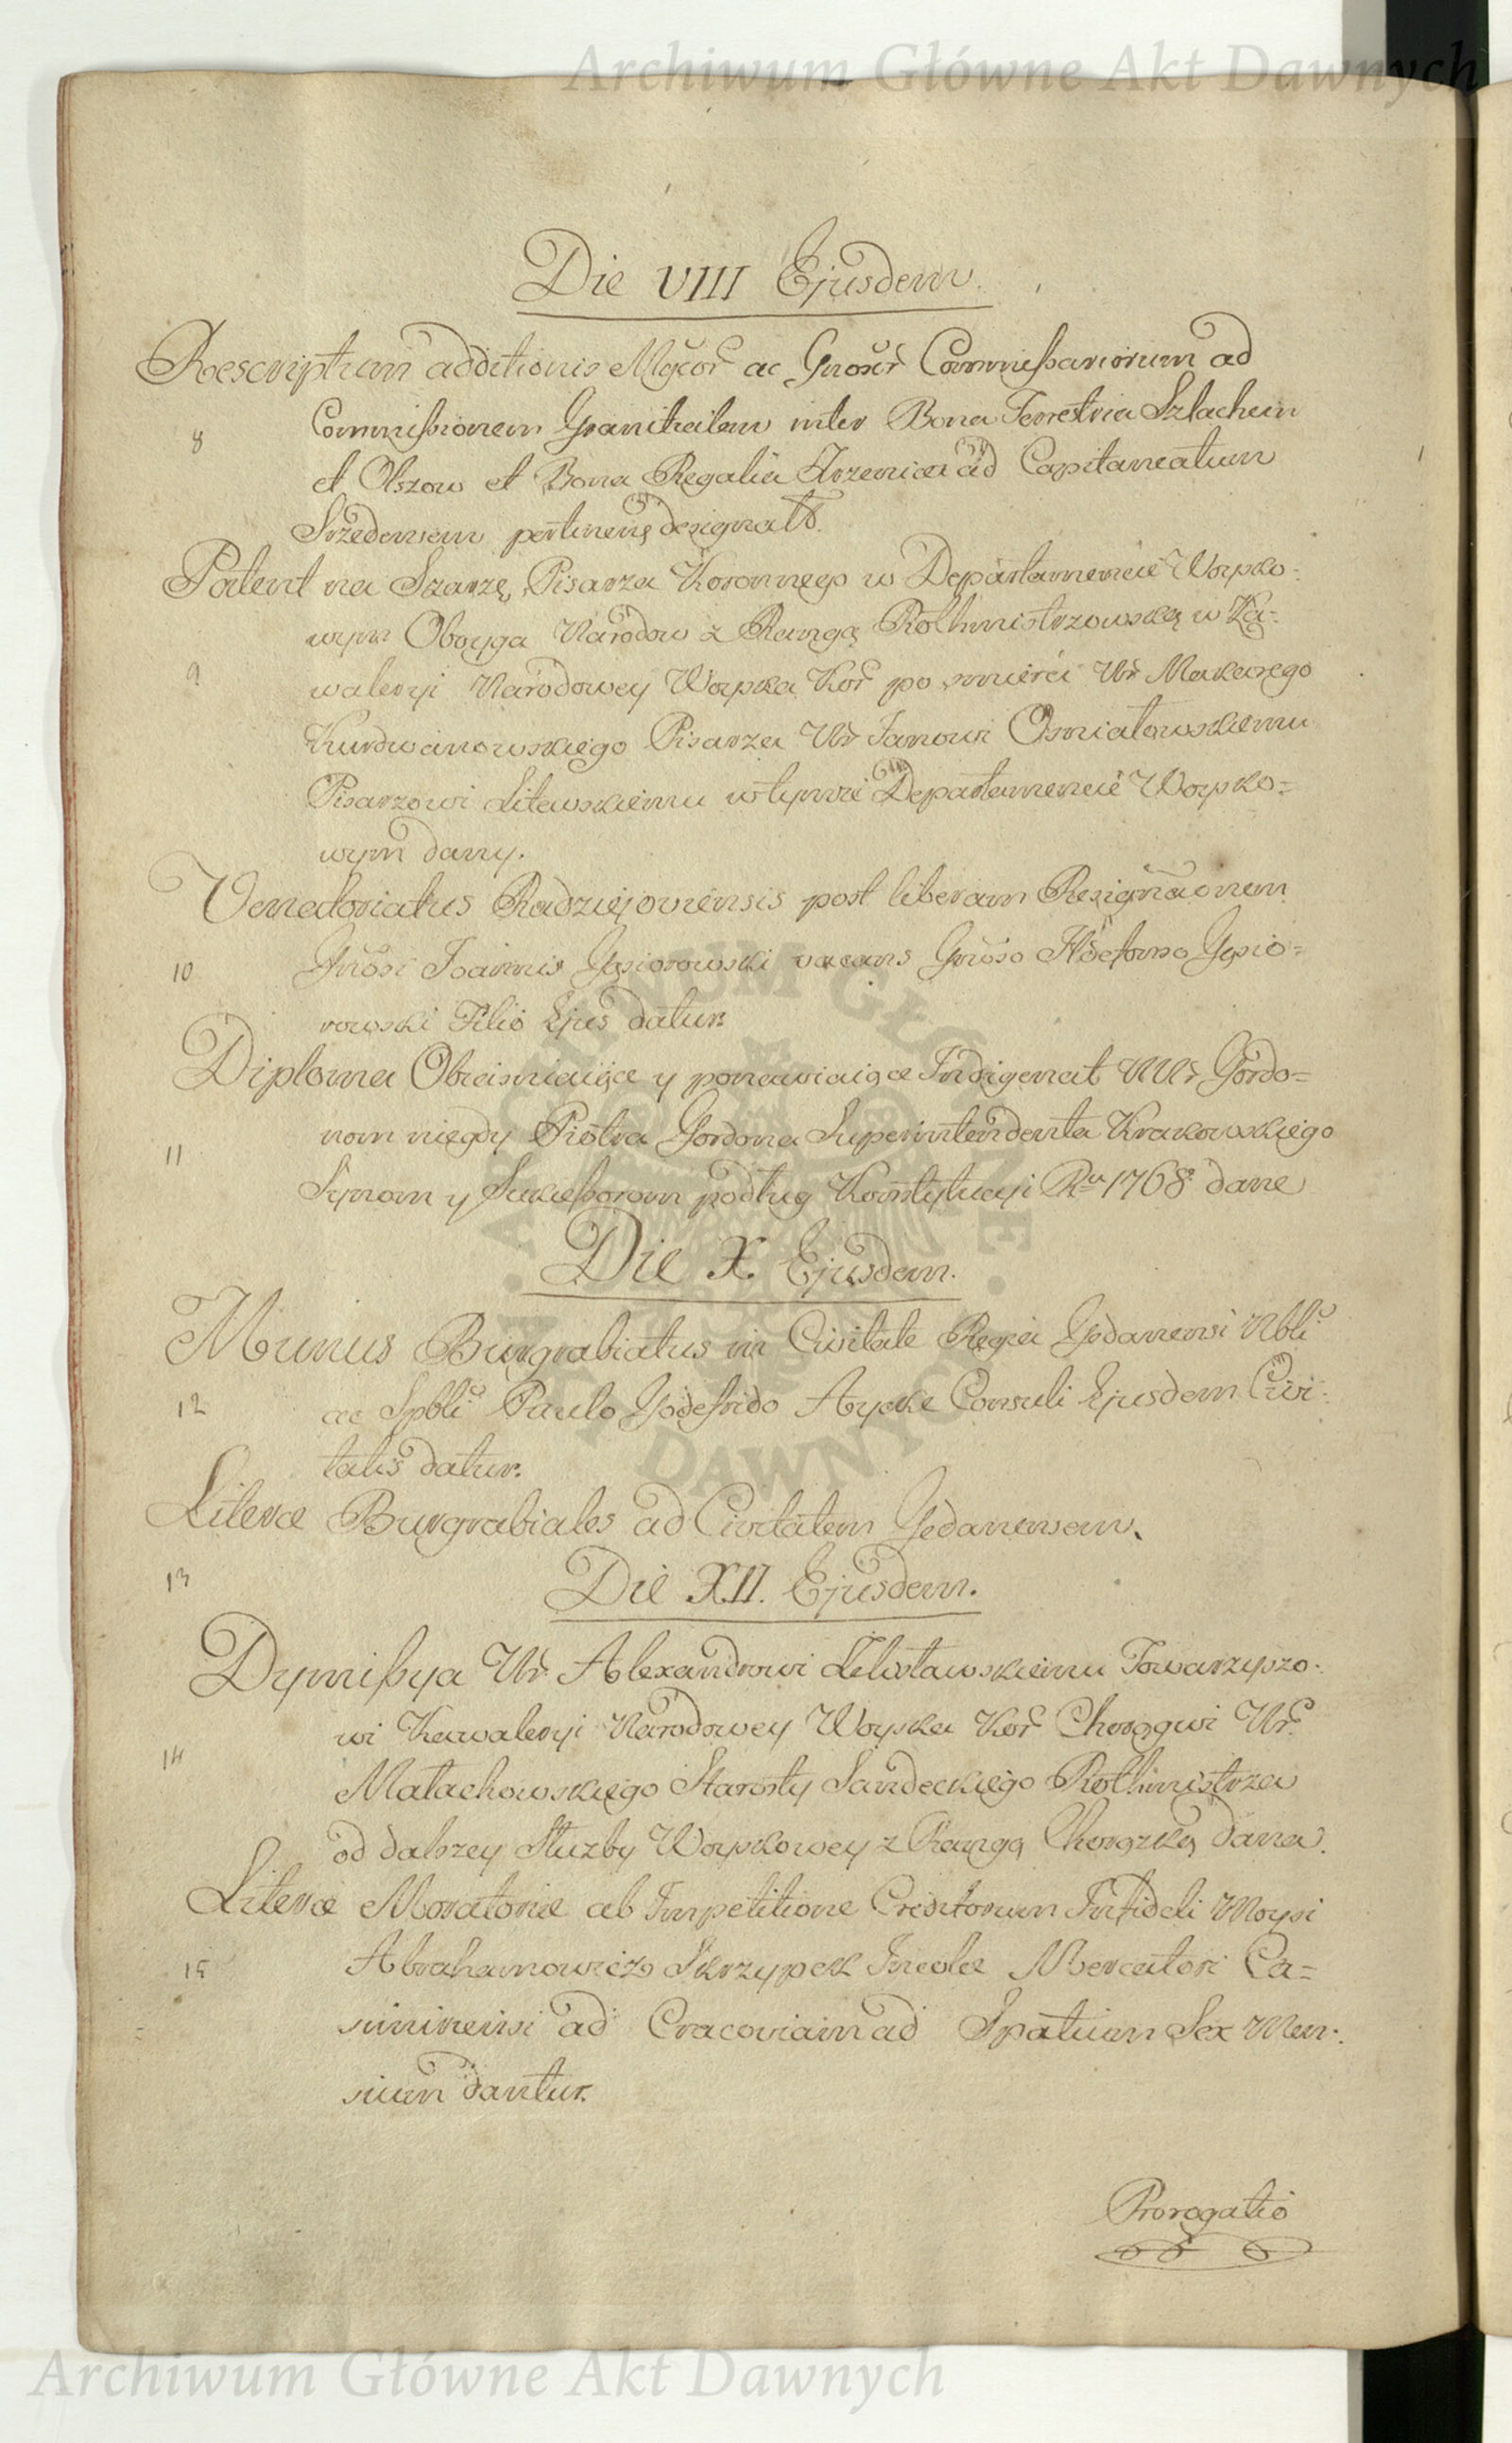 Archiwum Główne Akt Dawnych
Die VIII Ejusdem.
Rescriptum additionis Mgcor ac Gnosor Commissariorum ad
8 Commissionem Granitialem inter Bona Terrestria Szlachcin
et Olszow et Bona Regalia Brzeznica ad Capitaneatum
Srzedensem pertinens designatis.
Patent na Szarzę Pisarza Koronnego w Departamencie Woysko-
wym Oboyga Narodow z Rangą Rothmistrzowską w Ka-
9 waleryi Narodowey Woyska Kor po smierci Ur Makarego
Kurdwanowskiego Pisarza Ur Janowi Osmiałowskiemu
Pisarzowi Litewskiemu w tymże Departamencie Woysko-
wym dany.
Venatoriatus Radziejoviensis post liberam Resignaonem
10 Gnosi Joannis Gąsiorowski vacans Gnoso Ildefonso Gąsio-
rowski Filio Ejus datur.
Diploma Obiasniaiące y ponawiaiące Indigenat UUr Gordo-
nom niegdy Piotra Gordona Superintendenta Krakowskiego
11
Synom y Sukcessorom podług Konstytucyi Ru 1768 dane
Die X. Ejusdem.
Munus Burgrabiatus in Civitate Regia Gedanensi Nbli
12 ac Spbli Paulo Godefrido Aycke Consuli Ejusdem Civi-
tatis datur.
Literæ Burgrabiales ad Civitatem Gedanensem.
13 Die XII. Ejusdem.
Dymissya Ur Alexandrowi Lelistawskiemu Towarzyszo-
wi Kawaleryi Narodowey Woyska Kor Chorągwi Ur
14
Małachowskiego Starosty Sandeckiego Rothmistrza
od dalszey Służby Woyskowey z Rangą Chorążką dana.
Literæ Moratoriæ ab Impetitione Creditorum Infideli Moysi
15 Abrahamowicz Skrzypek Incolæ Mercatori Ca-
simiriensi ad Cracoviam ad Spatium Sex Men-
sium dantur.
Prorogatio
ARCHIWUM GŁÓWNE AKT DAWNYCH
Archiwum Główne Akt Dawnych